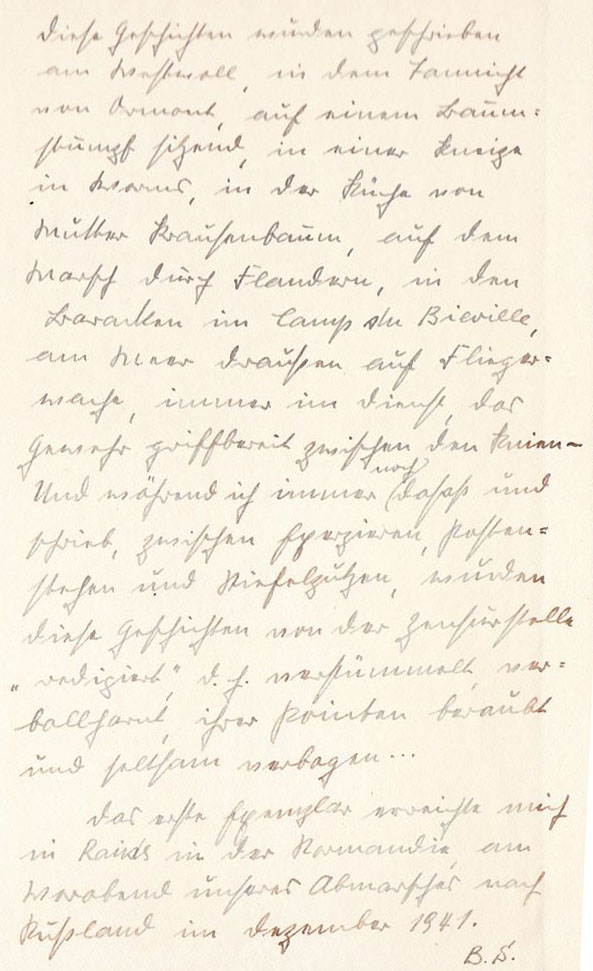 Diese Geschichten wurden geschrieben
am Westwall, in dem Tannicht
von Ormont, auf einem Baum=
stumpf sitzend, in einer Kneipe
in Worms, in der Küche von
Mutter Krausenbaum, auf dem
Marsch durch Flandern, in den
Baracken im Camp du Bieville,
am Meer draußen auf Flieger=
wache, immer im Dienst, das
Gewehr griffbereit zwischen den Knien –
Und während ich immer noch dasaß und
schrieb, zwischen Exerzieren, Posten=
stehen und Stiefelputzen, wurden
diese Geschichten von der Zensurstelle
"redigiert", d. h. verstümmelt, ver=
ballhornt, ihrer Pointen beraubt
und seltsam verbogen...
Das erste Exemplar erreichte mich
in in der Normandie, am
Vorabend unseres Abmarsches nach
Rußland im Dezember 1941.
B. S.